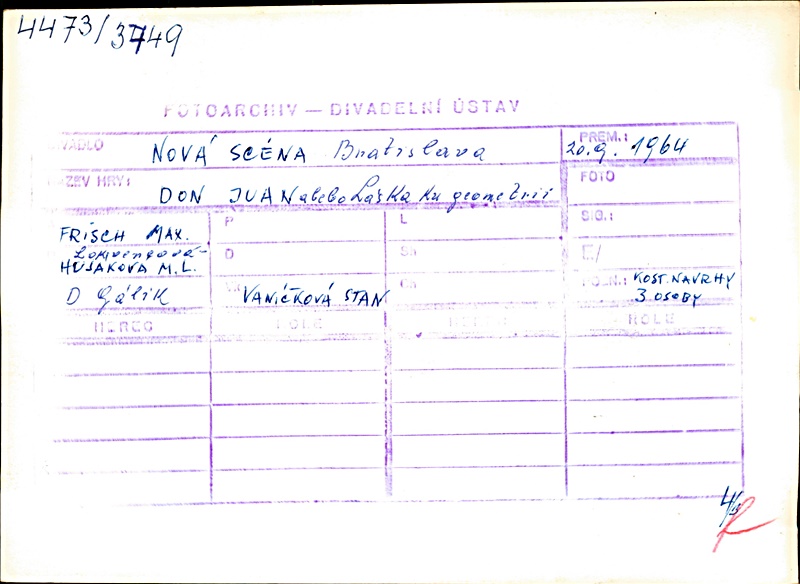 4473/3749
FOTOARCHIV — DIVADELNÍ ÚSTAV
VADLO NOVÁ SCÉNA Bratislava
PREM.: 20.9. 1964
ZEV HRY: DON JUAN alebo Láska ku geometrii
FOTO
FRISCH MAX.
P
L
SIG.:
HUSÁKOVÁ M.L.
D
Sh
E/
D Gálik
VANÍČKOVÁ STAN
Ch
POZN.: KOST. NÁVRHY
3 OSOBY
HEREC ROLE HEREC ROLE